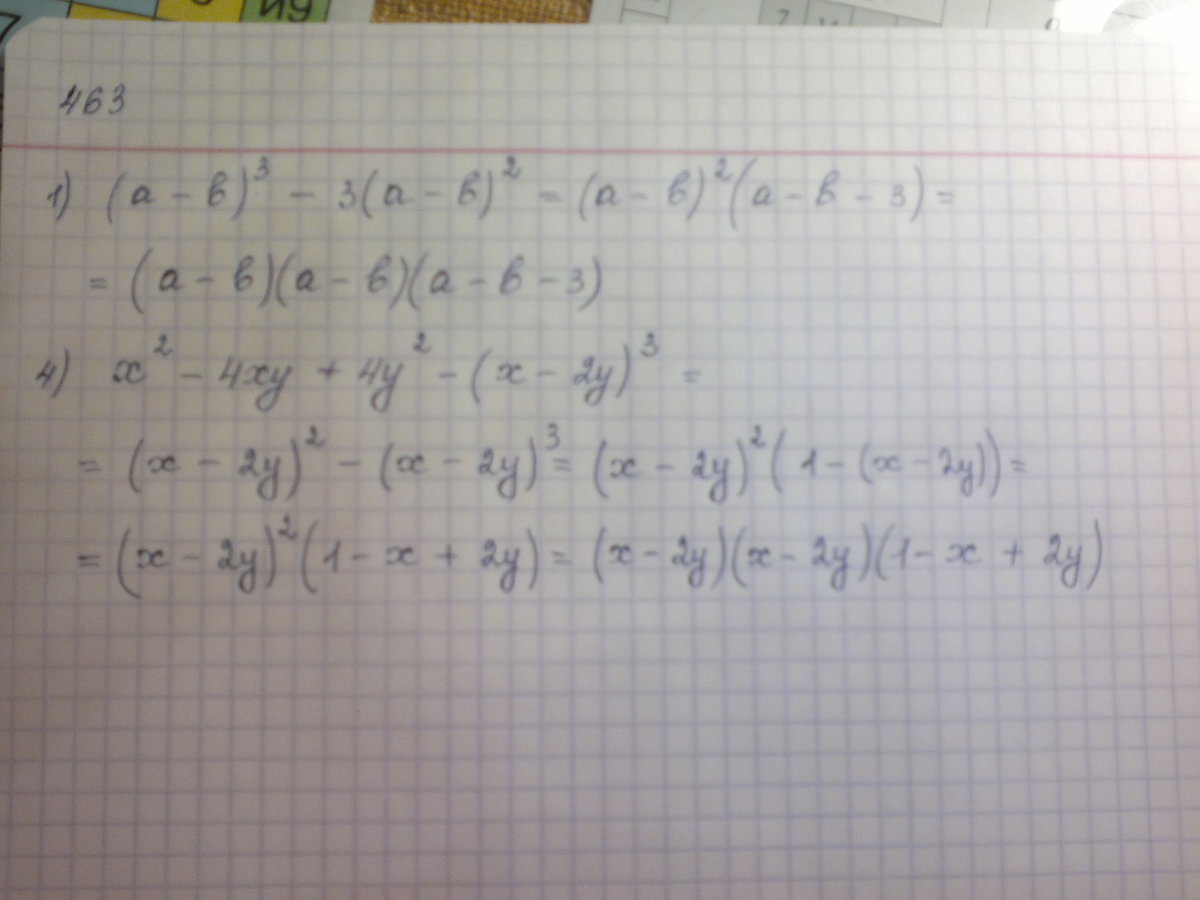 463
1) (a - b)³ - 3(a - b)² = (a - b)²(a - b - 3) =
= (a - b)(a - b)(a - b - 3)
4) x² - 4xy + 4y² - (x - 2y)³ =
= (x - 2y)² - (x - 2y)³ = (x - 2y)²(1 - (x - 2y)) =
= (x - 2y)²(1 - x + 2y) = (x - 2y)(x - 2y)(1 - x + 2y)